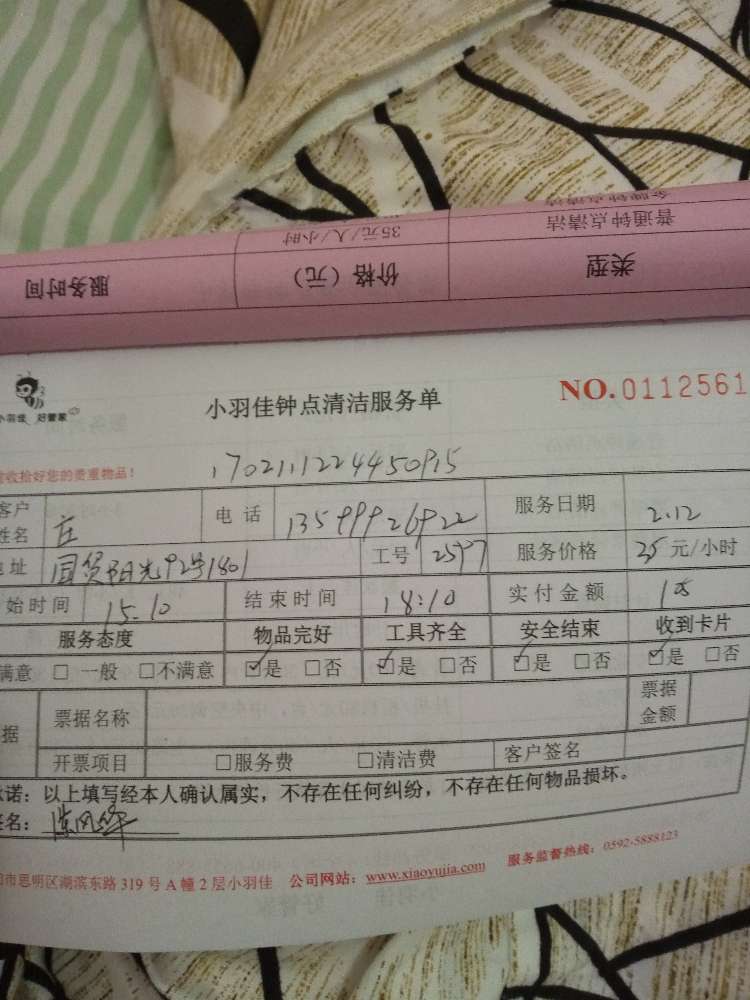 金牌钟点清洁
普通钟点清洁 35元/人/小时
类型 价格（元） 服务时间
小羽佳 好管家
小羽佳钟点清洁服务单 NO.0112561
收拾好您的贵重物品！
客户姓名 庄 电话 13599926922 服务日期 2.12
地址 国贸阳光92号1801 工号 服务价格 35元/小时
始时间 15.10 结束时间 18:10 实付金额 105
服务态度 物品完好 工具齐全 安全结束 收到卡片
满意 □一般 □不满意 ☑是 □否 ☑是 □否 ☑是 □否 ☑是 □否
据 票据名称 票据金额
开票项目 □服务费 □清洁费 客户签名
承诺：以上填写经本人确认属实，不存在任何纠纷，不存在任何物品损坏。
签名：
市思明区湖滨东路319号A幢2层小羽佳 公司网站：www.xiaoyujia.com 服务监督热线：0592-5888123